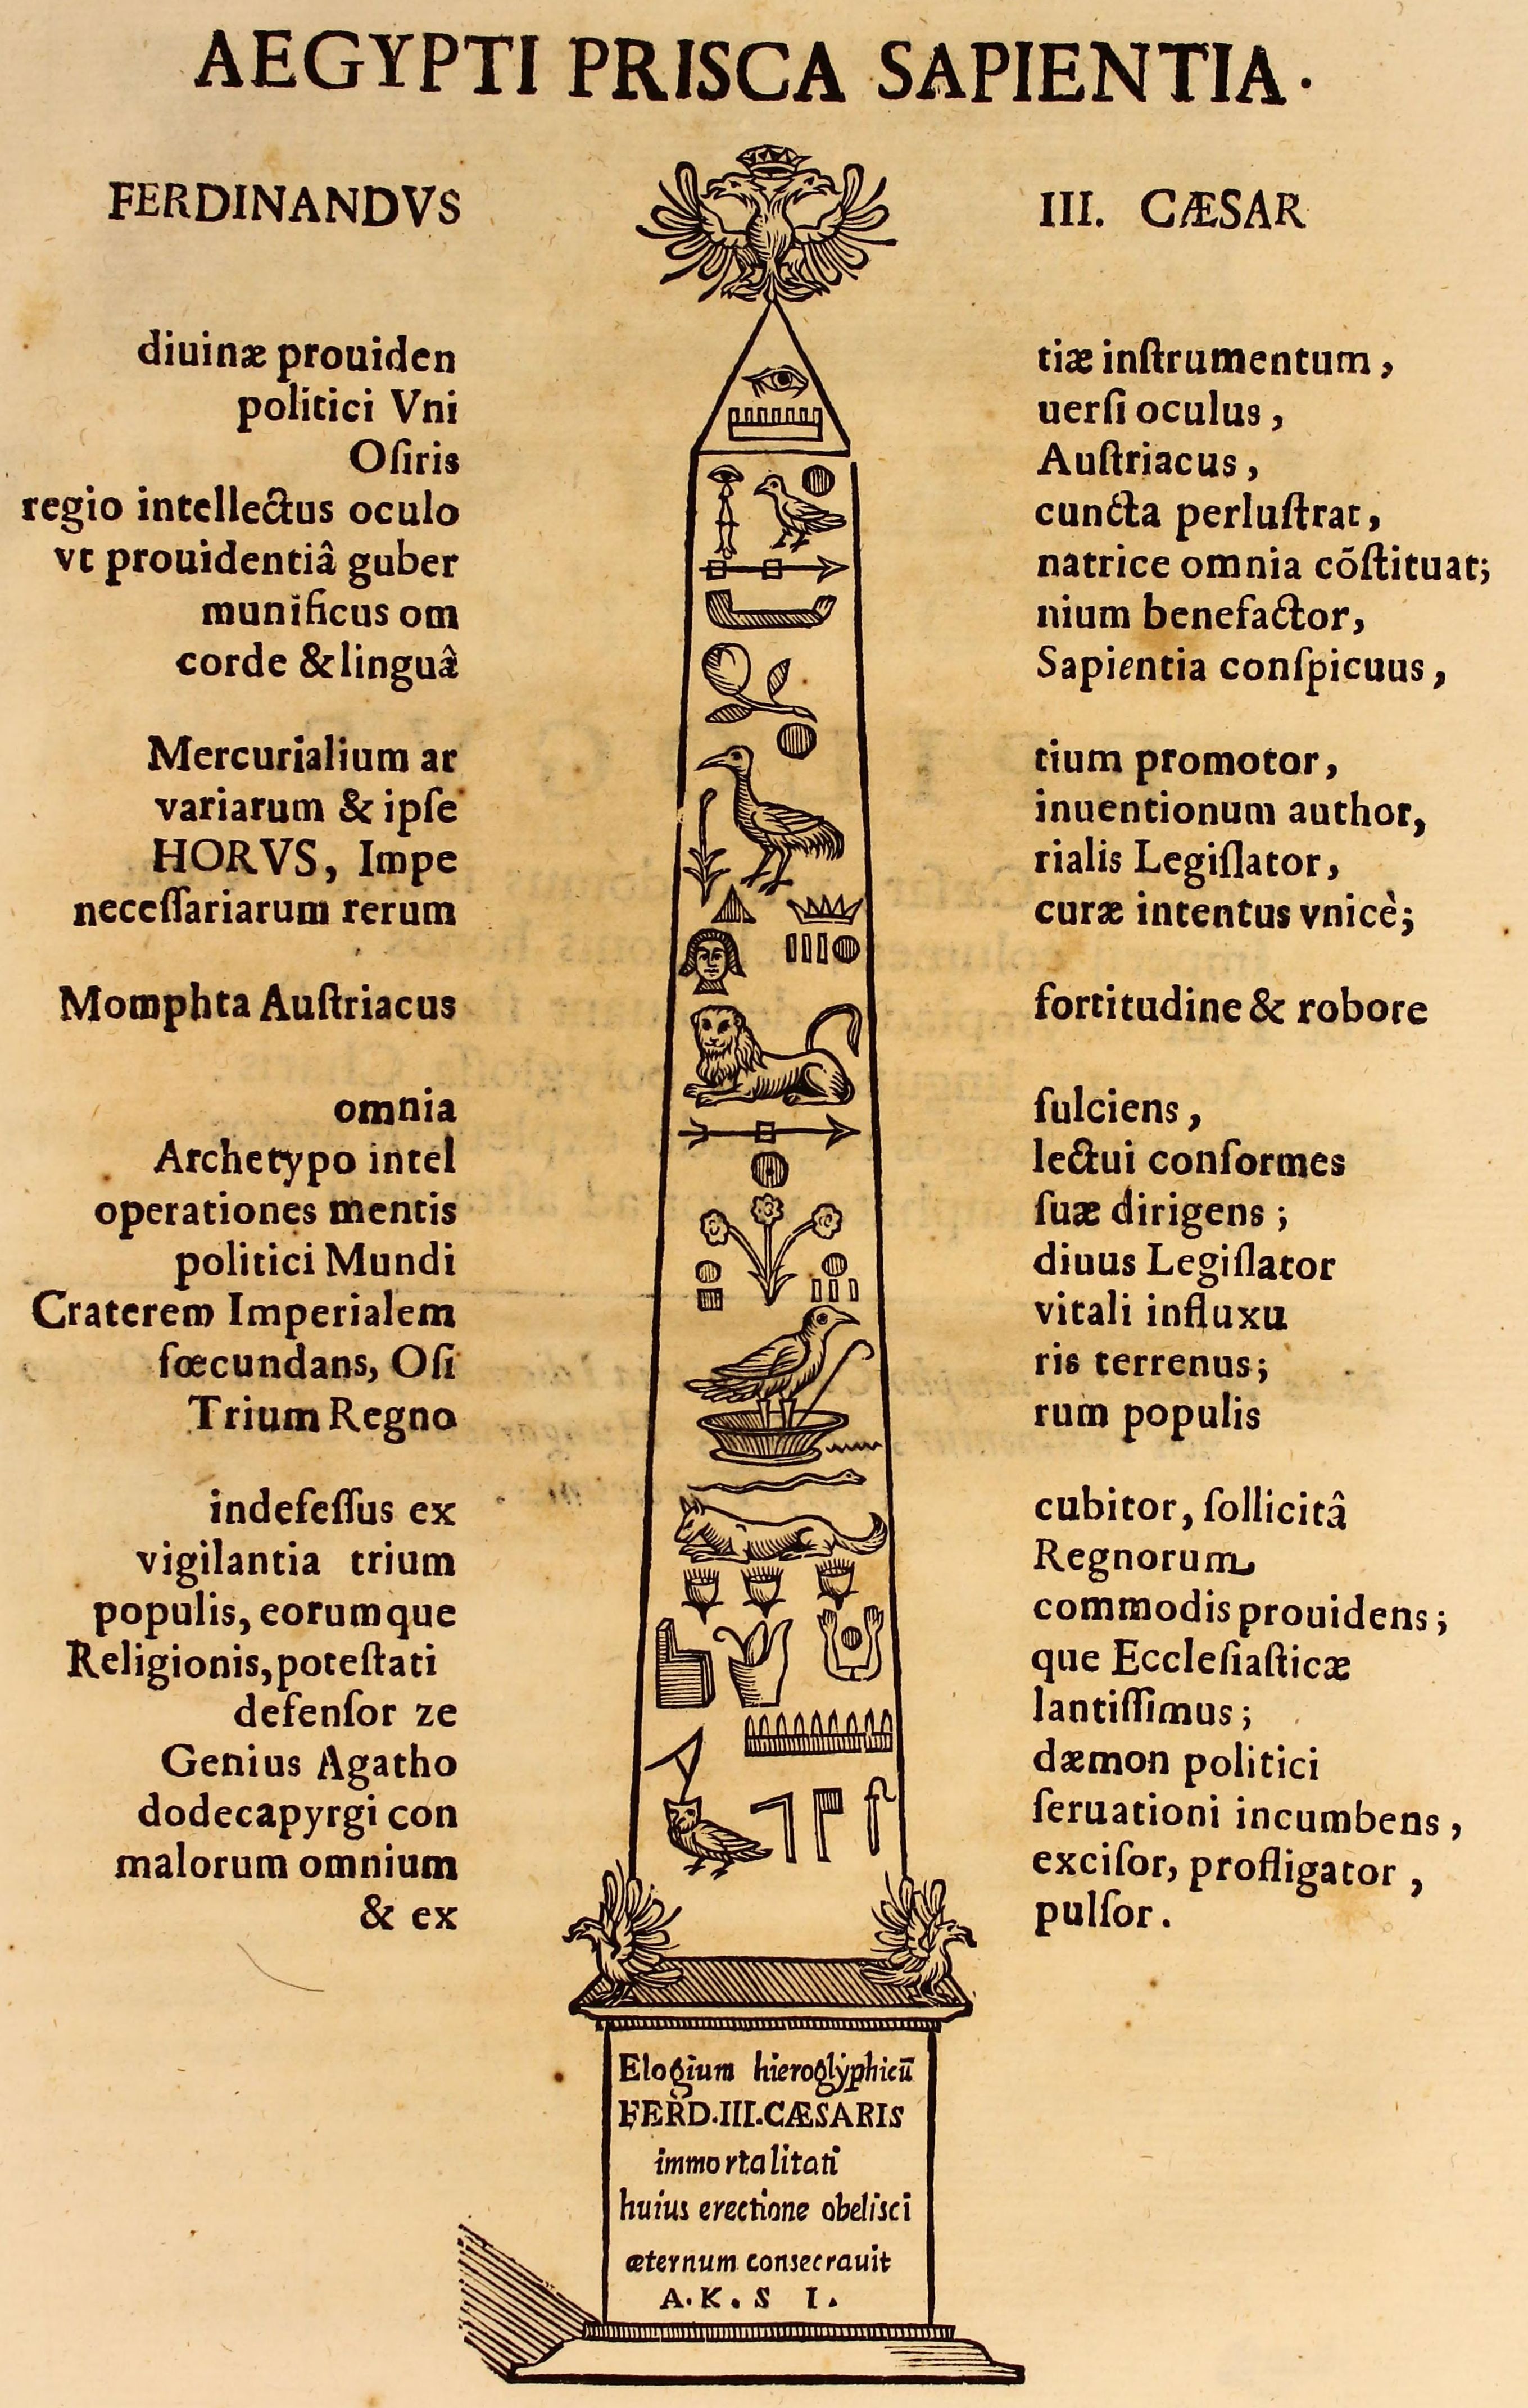 AEGYPTI PRISCA SAPIENTIA.
FERDINANDVS III. CÆSAR
diuinæ prouiden tiæ inſtrumentum,
politici Vni uerſi oculus,
Oſiris Auſtriacus,
regio intellectus oculo cuncta perluſtrat,
vt prouidentiâ guber natrice omnia cōſtituat;
munificus om nium benefactor,
corde & linguâ Sapientia conſpicuus,
Mercurialium ar tium promotor,
variarum & ipſe inuentionum author,
HORVS, Impe rialis Legiſlator,
neceſſariarum rerum curæ intentus vnicè;
Momphta Auſtriacus fortitudine & robore
omnia fulciens,
Archetypo intel lectui conformes
operationes mentis ſuæ dirigens;
politici Mundi diuus Legiſlator
Craterem Imperialem vitali influxu
fœcundans, Oſi ris terrenus;
Trium Regno rum populis
indefeſſus ex cubitor, ſollicitâ
vigilantia trium Regnorum
populis, eorumque commodis prouidens;
Religionis, poteſtati que Eccleſiaſticæ
defenſor ze lantiſſimus;
Genius Agatho dæmon politici
dodecapyrgi con ſeruationi incumbens,
malorum omnium exciſor, profligator,
& ex pulſor.
Elogium hieroglÿphicū
FERD.III.CÆSARIS
immortalitati
huius erectione obelisci
æternum consecrauit
A.K.S I.